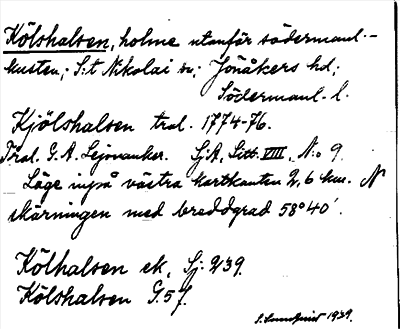 Kölshalsen, holme utanför södermanl.-
kusten; S:t Nikolai sn; Jönåkers hd;
Södermanl. l.
Kjölshalsen tral. 1774-76.
Tral. G. A. Lejonanker. SjA, Litt. VIII, N:o 9.
Läge inpå västra kartkanten 2,6 km. N
skärningen med breddgrad 58°40'.
Kölhalsen ek. Sj. 239.
Kölshalsen G. 57.
S. Lundqvist 1939.